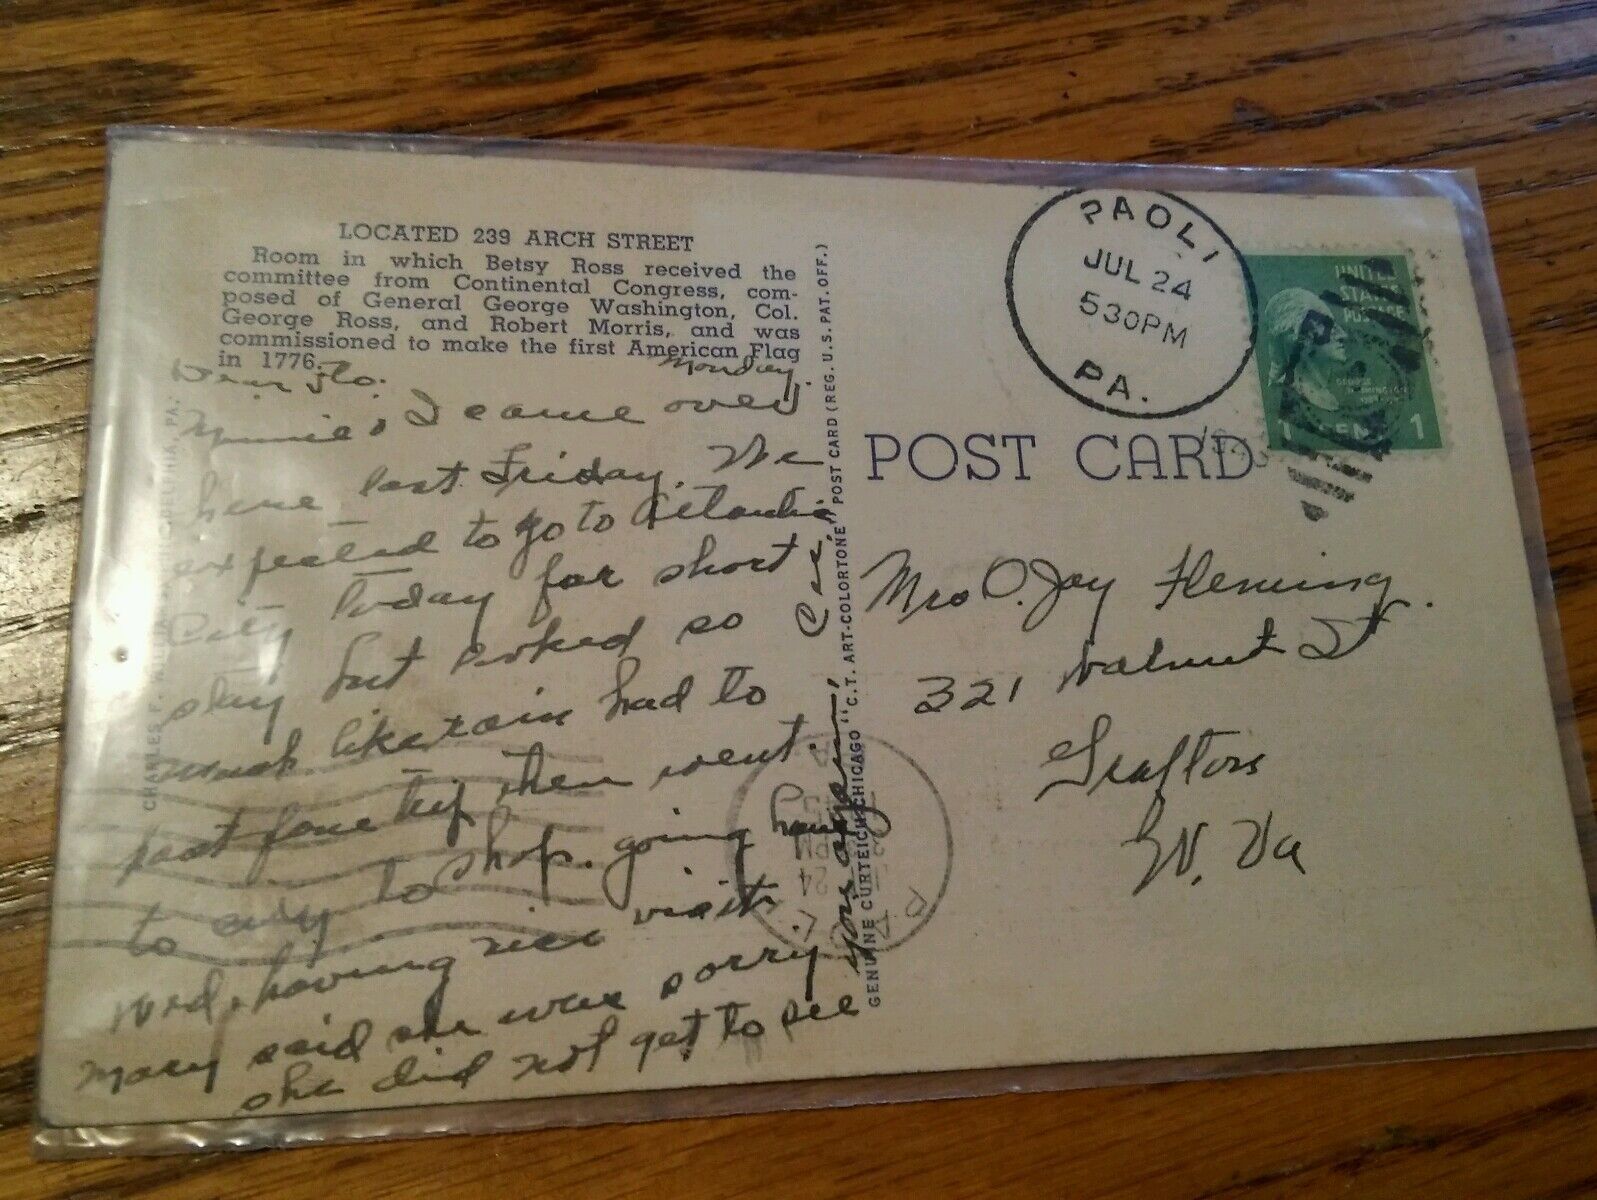 LOCATED 239 ARCH STREET
Room in which Betsy Ross received the
committee from Continental Congress, com-
posed of General George Washington, Col.
George Ross, and Robert Morris, and was
commissioned to make the first American Flag
in 1776.
Monday.
Dear Flo.
I came over
here last Friday. We
expected to go to Atlantic
City today for short
stay but looked so
much like rain had to
post pone trip then went
to city to shop. going home
Wed. having nice visit
Mary said she was sorry
she did not get to see
you again.
CHARLES F. PHILADELPHIA, PA.
GENUINE CURTEICH-CHICAGO "C.T. ART-COLORTONE" POST CARD (REG. U.S. PAT. OFF.)
PAOLI
JUL 24
530PM
PA.
UNITED
STATES
POSTAGE
GEORGE
WASHINGTON
1 CENT 1
POST CARD
Mrs O. Jay Fleming.
321 Walnut St
Grafton
W. Va
24
PA